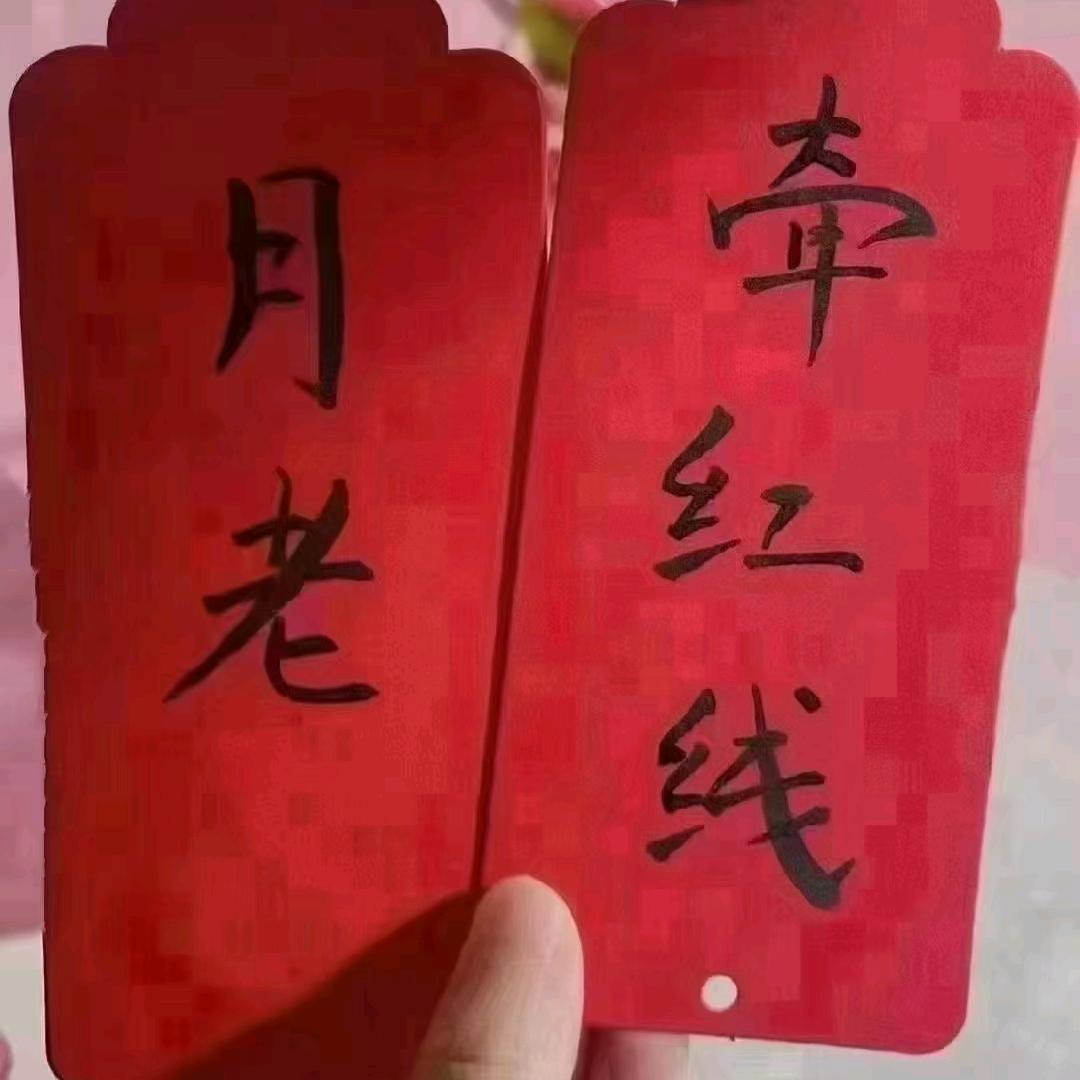 月老
牵红线